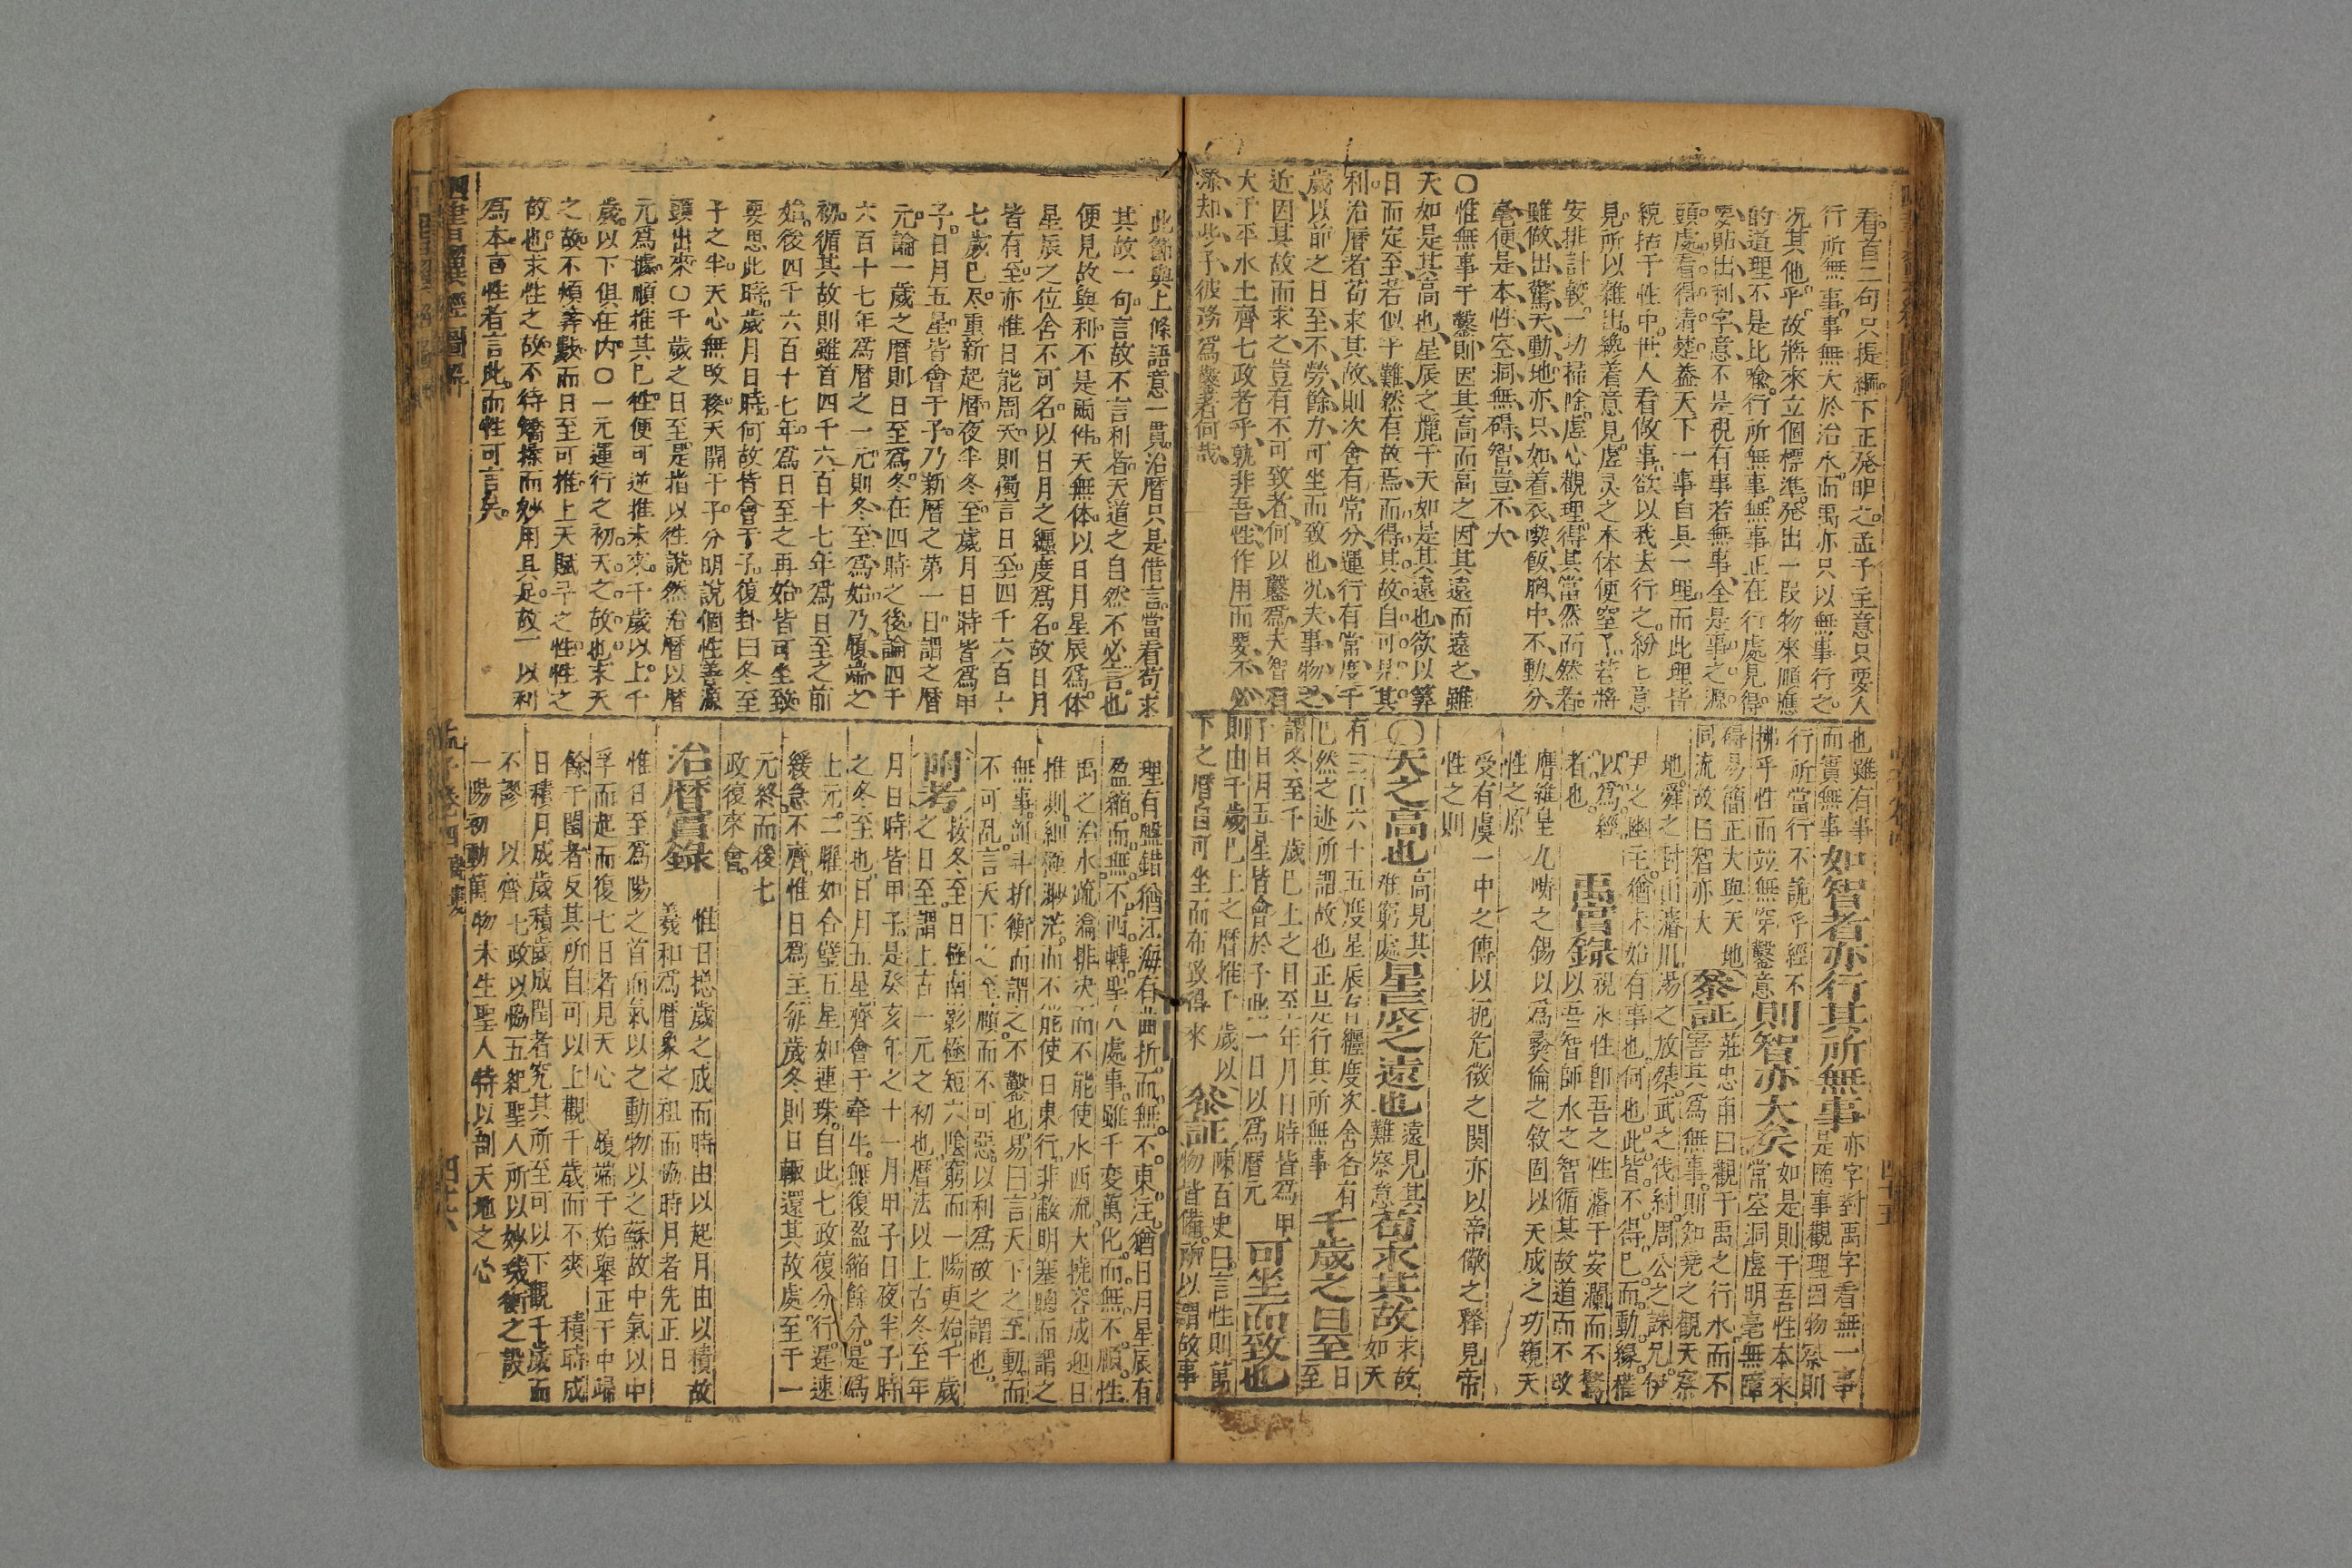 看首二句只提綱下正発明之孟子主意只要人
行所無事事無大於治水而禹亦只以無事行之
况其他乎故將來立個標準発出一段物來順應
的道理不是比喩行所無事無事正在行處見得
要貼出利字意不是視有事若無事全是事之源
頭處看得清楚葢天下一事自具一理而此理皆
統括于性中世人看做事欲以我去行之紛匕意
見所以雜出纔着意見虗灵之本体便窒了若將
安排計較一切掃除虗心觀理得其當然而然者
雖做出驚天動地亦只如着衣喫飯胸中不動分
毫便是本性空洞無碍智豈不大
〇惟無事于鑿則因其高而高之因其遠而遠之雖
天如是其高也星辰之麗于天如是其遠也欲以筭
日而定至若似乎難然有故焉而得其故自可見其
利治暦者苟求其故則次舍有常分運行有常度千
歲以前之日至不勞餘力可坐而致也况夫事物之
近因其故而求之豈有不可致者何以鑿爲夫智有
大于平水土齊七政者乎孰非吾性作用而要不必
深知此子彼務爲鑿者何哉
也雖有事
而實無事如智者亦行其所無事亦字對禹字看無一事
是随事觀理因物察則
行所當行不詭乎經不
拂乎性而並無穿鑿意則智亦大矣如是則于吾性本來
常空洞虗明毫無障
得易簡正大與天地
同流故曰智亦大
叅証莊忠甫曰觀于禹之行水而不
害其爲無事則知堯之觀天察
地舜之封山濬川湯之放桀武之伐紂周公之誅兄伊
尹之幽主猶未始有事也何也此皆不得已而動緣權
以爲經
者也
禹實録視水性卽吾之性濬于安瀾而不驚
以吾智師水之智循其故道而不改
膺雒皇九疇之錫以爲彛倫之敘固以天成之功窺天
性之原
受有虞一中之傳以扼危微之関亦以帝儆之釋見帝
性之則
〇天之高也高見其
难窮處星辰之遠也遠見其
難察意苟求其故求故
如天
有三百六十五度星辰有纒度次舍各有
已然之迹所謂故也正是行其所無事千歲之日至日
至
謂冬至千歲已上之日至年月日時皆爲甲
子日月五星皆會於子此一日以爲暦元可坐而致也
則由千歲已上之暦推千歲以
下之暦皆可坐而布致得來叅証陳百史曰言性則萬
物皆備所以謂故事
此節與上條語意一貫治暦只是借言當看苟求
其故一句言故不言利者天道之自然不必言也
便見故與利不是兩件天無体以日月星辰爲体
星辰之位舍不可名以日月之纒度爲名故日月
皆有至亦惟日能周天則獨言日至四千六百十
七歲已尽重新起暦夜半冬至歲月日時皆爲甲
子日月五星皆會于子乃新暦之第一日謂之暦
元論一歲之暦則日至爲冬在四時之後論四千
六百十七年爲暦之一元則冬至爲始乃履端之
初循其故則雖首四千六百十七年爲日至之前
始後四千六百十七年爲日至之再始皆可坐致
要思此時歲月日時何故皆會于子復卦曰冬至
子之半天心無改移天開于子分明説個性善源
頭出來〇千歲之日至是指以徃説然治暦以暦
元爲據順推其已徃便可逆推未來千歲以上千
歲以下俱在内〇一元運行之初天之故也求天
之故不煩筭數而日至可推上天賦予之性性之
故也求性之故不待矯揉而妙用具足故一以利
爲本言性者言此而性可言矣
理有盤錯猶江海有曲折而無不東注猶日月星辰有
盈縮而無不西轉聖人處事雖千変萬化而無不順性
禹之治水疏瀹排决而不能使水西流大撓容成迎日
推測細極渺茫而不能使日東行非蔽明塞聰而謂之
無事剖斗折衡而謂之不鑿也易曰言天下之至動而
不可乱言天下之至賾而不可惡以利爲故之謂也
附考按冬至日極南影極短六陰窮而一陽更始千歲
之日至謂上古一元之初也暦法以上古冬至年
月日時皆甲子是癸亥年之十一月甲子日夜半子時
之冬至也日月五星齊會于牽牛無復盈縮餘分是爲
上元二曜如合璧五星如連珠自此七政復分行遲速
緩急不齊惟日爲主每歲冬則日輒還其故處至于一
元終而後七
政復來會
治暦實錄惟日揔歲之成而時由以起月由以積故
羲和爲暦象之祖而協時月者先正日
惟日至爲陽之首而氣以之動物以之蘇故中氣以中
孚而起而復七日者見天心履端于始舉正于中歸
餘于閏者反其所自可以上觀千歲而不爽積時成
日積月成歲積歲成閏者究其所至可以下觀千歲而
不謬以齊七政以恊五紀聖人所以妙璣衡之設
一陽初動萬物未生聖人特以剖天地之心
四十五
四十六